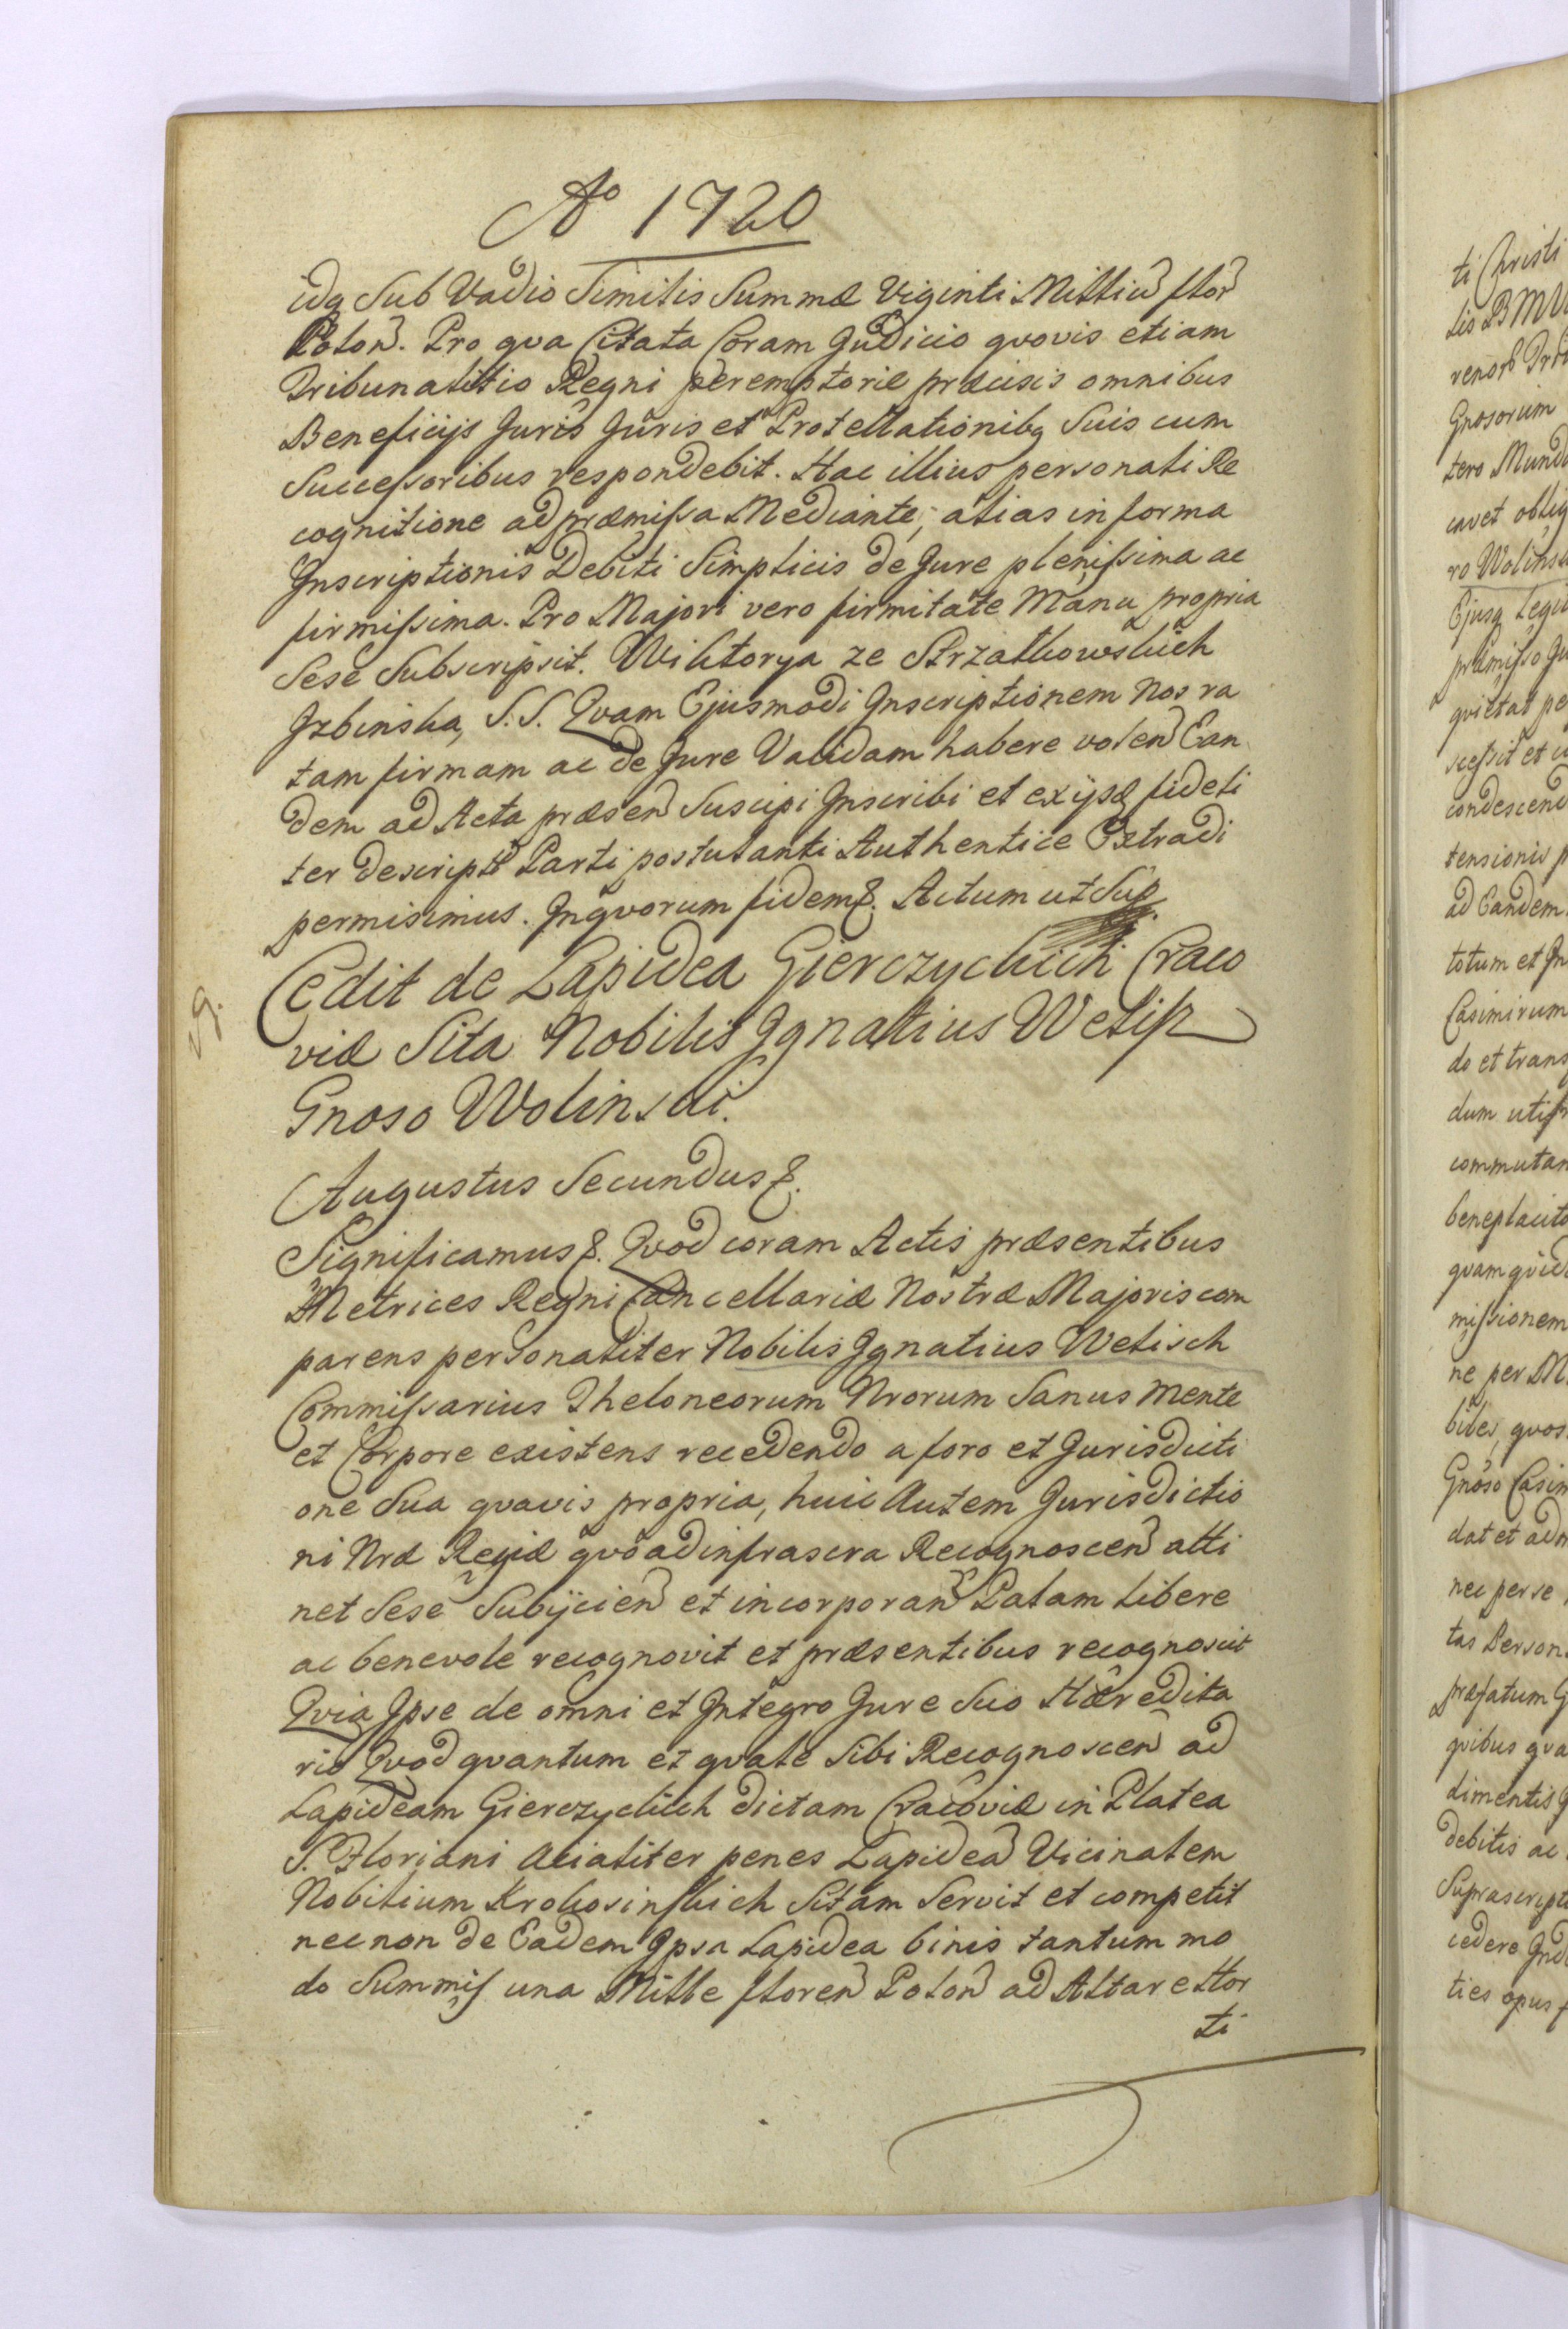 Aº 1720
idq Sub Vadio Similis Summæ Viginti Milliū flor̄
Polon̄. Pro qva Citata Coram Judicio qvovis etiam
Tribunalitio Regni peremptorie præcisis omnibus
Beneficijs Juris Juris et Protellationibq Suis cum
Succeſsoribus respondebit. Hac illius personali Re
cognitione ad præmiſsa Mediante, alias in forma
Inscriptionis Debiti Simplicis de Jure pleniſsima ac
firmiſsima. Pro Majori vero firmitate Manu propria
Sese Subscripsit. Wiktorya ze Strzałkowskich
Grbinska, S.S. Qvam Ejusmodi Inscriptionem Nos ra
tam firmam ac de Jure Validam habere volen̄ Ean
dem ad Acta præsen̄ Suscipi Inscribi et ex ijsq fideli
ter descript Parti postulanti Authentice Extradi
permisimus. Inqvorum fidem &. Actum ut Sup.
Cedit de Lapidea Gierczyckich Craco
viæ Sita Nobilis Ignatius Welisz
Gnoso Wolinski.
vg.
Augustus Secundus &.
Significamus &. Qvod coram Actis præsentibus
Metrices Regni Cancellariæ Nostræ Majoris com
parens personaliter Nobilis Ignatius Welisch
Commiſsarius Theloneorum Nrorum Sanus mente
et Corpore existens recedendo a foro et Jurisdicti
one Sua qvavis propria, huic Autem Jurisdictio
ni Nræ Regiæ qvo ad infrascra Recognoscen̄ atti
net Sese Subijcien̄ et incorporan̄ Palam libere
ac benevole recognovit et præsentibus recognoscit
Qvia Ipse de omni et Integro Jure Suo Hæredita
rio Qvod qvantum et qvale Sibi Recognoscen̄ ad
Lapideam Gierczyckich dictam Cracoviæ in Platea
S. Floriani Acialiter penes Lapideā Vicinalem
Nobilium Krokosinskich Sitam Servit et competit
nec non de Eadem Ipsa Lapidea binis tantum mo
do Summis una Mille floren̄ Polon̄ ad Altare Hor
ti
ti Christi
lis BMV
Gnosorum
tero Mund
cavet oblig
ro Wolinsk
Ejusq Legi
præmiſso Ju
qvietat pe
sceſsit et
condescend
tensionis p
ad Eandem
totum et In
Casimirum
do et trans
dum uti
commutan
beneplacito
qvam qvid
miſsionem
ne per M
biles, qvos
Gnoso Casim
dat et adm
nec per se
tas Person
præfatum G
qvibus qva
dimentis
debitis ac
Suprascript
cedere Ind
ties opus f